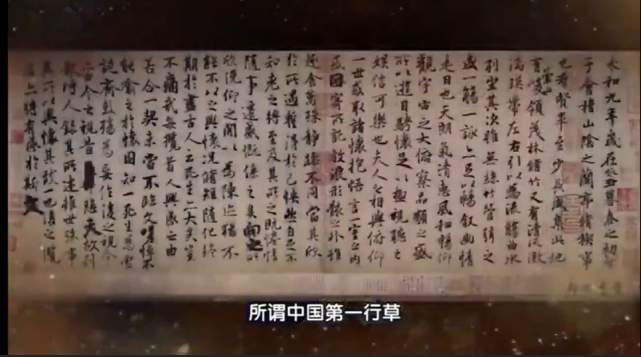 永和九年歲在癸丑暮春之初會
于會稽山陰之蘭亭脩禊事
也群賢畢至少長咸集此地
有崇山峻領茂林脩竹又有清流激
湍暎帶左右引以為流觴曲水
列坐其次雖無絲竹管弦之
盛一觴一詠亦足以暢敘幽情
是日也天朗氣清惠風和暢仰
觀宇宙之大俯察品類之盛
所以遊目騁懷足以極視聽之
娛信可樂也夫人之相與俯仰
一世或取諸懷抱悟言一室之內
或因寄所託放浪形骸之外雖
趣舍萬殊靜躁不同當其欣
於所遇蹔得於己快然自足不
知老之將至及其所之既惓情
隨事遷感慨係之矣向之所
欣俛仰之閒以為陳迹猶不
能不以之興懷況脩短隨化終
期於盡古人云死生亦大矣豈
不痛哉每攬昔人興感之由
若合一契未嘗不臨文嗟悼不
能喻之於懷固知一死生為虛
誕齊彭殤為妄作後之視今
亦由今之視昔悲夫故列
敘時人錄其所述雖世殊事
異所以興懷其致一也後之攬
者亦將有感於斯文
所谓中国第一行草